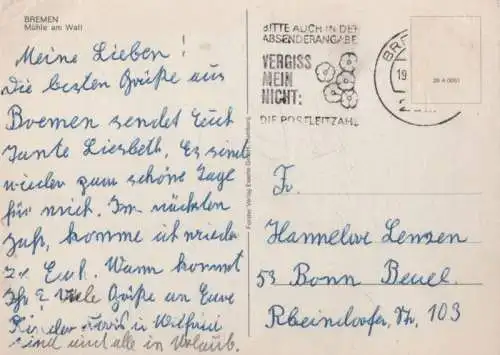 BREMEN
Mühle am Wall
Meine Lieben!
die besten Grüße aus
Bremen sendet Euch
Tante Liesbeth. Es sind
wieder zum schöne Tage
für mich. Im nächsten
Jahr, komme ich wieder
zu Euch. Wann kommt
Ihr? Viele Grüße an Eure
Kinder
sind und alle in Urlaub.
BITTE AUCH IN DER
ABSENDERANGABE
VERGISS
MEIN
NICHT:
DIE POSTLEITZAHL
BRE
19
28 4 0001
Fr.
Hannelore Lenzen
53 Bonn Beuel.
Rheindorfer Str. 103